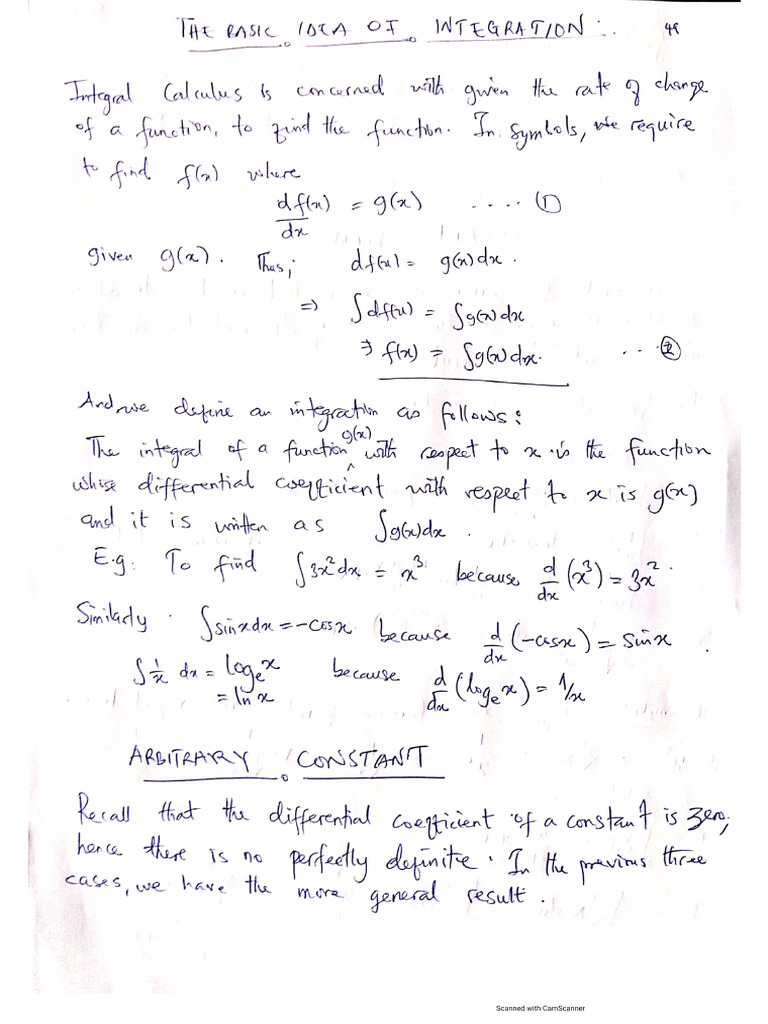 THE BASIC IDEA OF INTEGRATION:. 48
Integral Calculus is concerned with given the rate of change
of a function, to find the function. In symbols, we require
to find f(x) where
df(x)/dx = g(x) .... ①
given g(x). Thus; df(x) = g(x)dx.
⇒ ∫df(x) = ∫g(x)dx
⇒ f(x) = ∫g(x)dx. ... ②
And we define an integraction as follows:
The integral of a function g(x) with respect to x is the function
whose differential coefficient with respect to x is g(x)
and it is written as ∫g(x)dx.
E.g: To find ∫3x²dx = x³ because d/dx (x³) = 3x².
Similarly. ∫sinxdx = -cosx because d/dx (-cosx) = sinx.
∫1/x dx = logₑx because d/dx (logₑx) = 1/x
= ln x
ARBITRARY CONSTANT
Recall that the differential coefficient of a constant is zero,
hence there is no perfectly definite. In the previous three
cases, we have the more general result.
Scanned with CamScanner